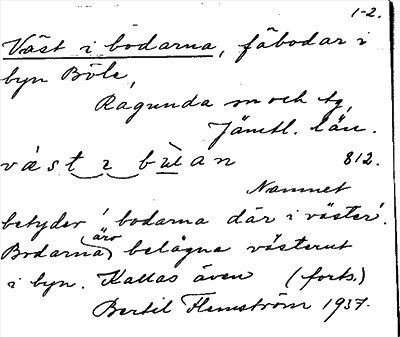 1-2.
Väst i bodarna, fäbodar i
byn Böle,
Ragunda sn och tg,
Jämtl. län.
vást i bùan 812.
Namnet
betyder 'bodarna där i väster'.
Bodarna äro belägna västerut
i byn. Kallas även (forts.)
Bertil Flemström 1937.